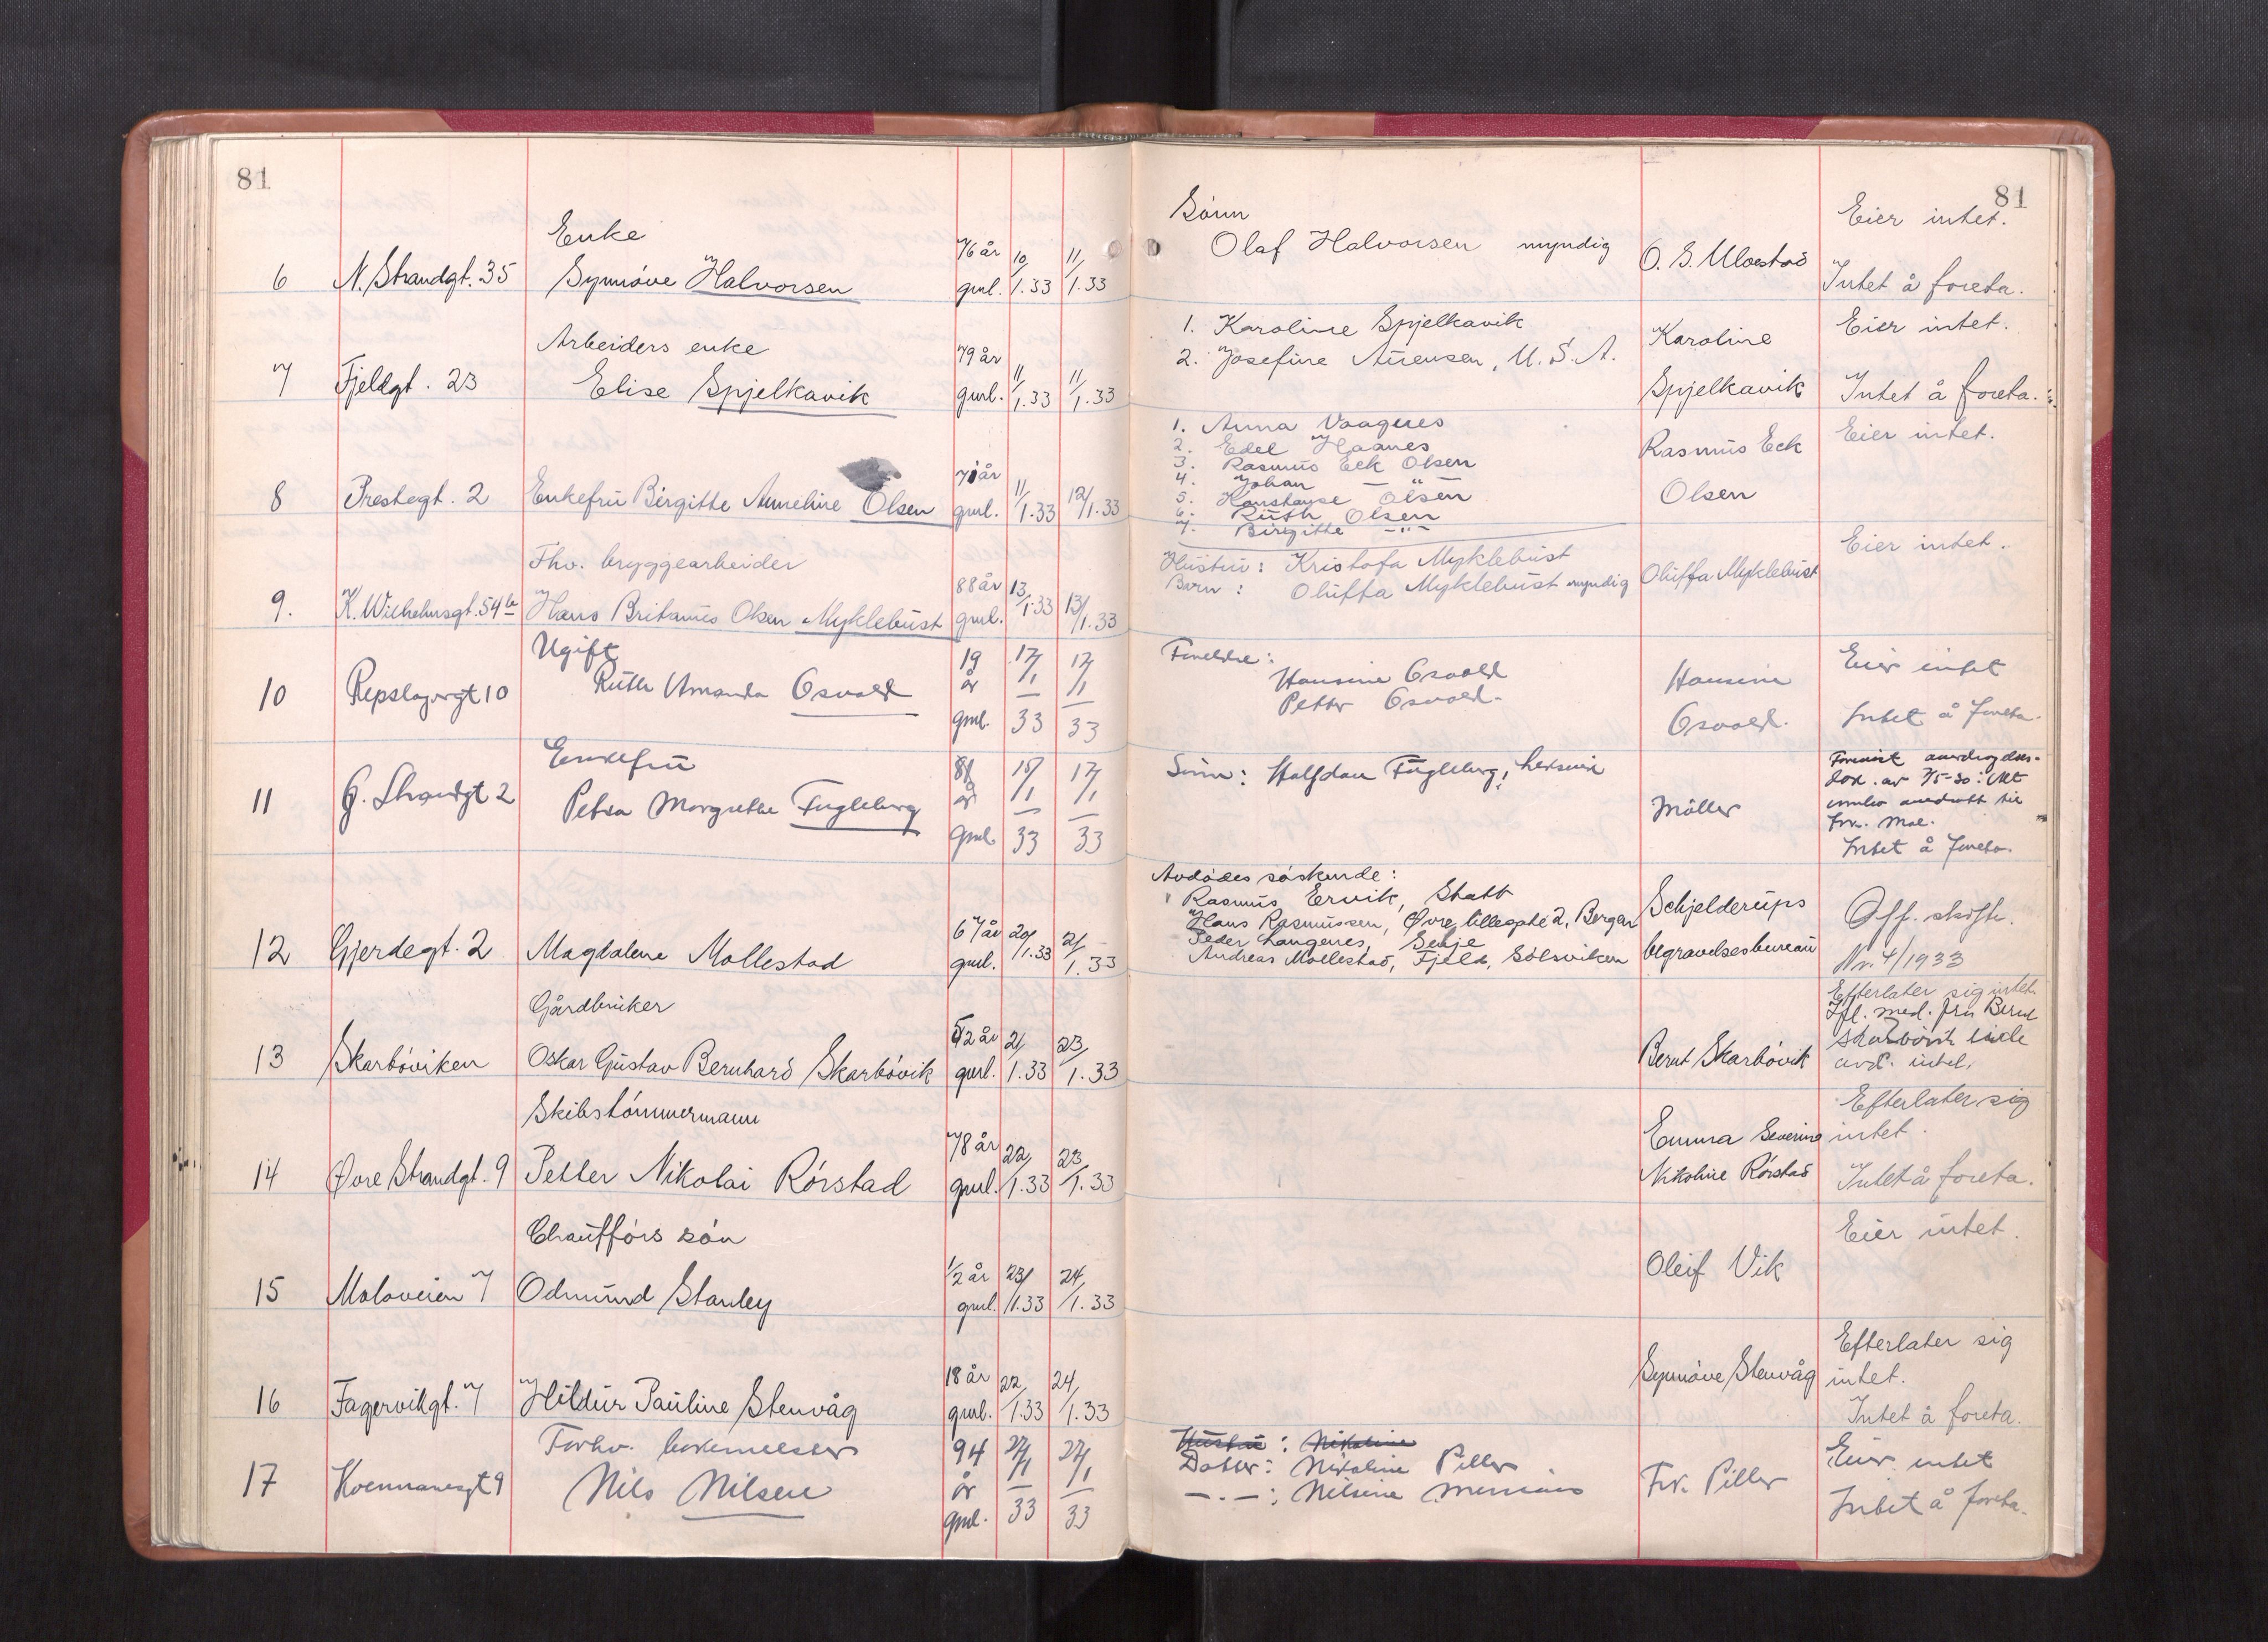 81
81
6 N. Strandgt. 35
Enke
Synnöve Halvorsen
76 år
gml.
10/1.33
11/1.33
Sönn
Olaf Halvorsen myndig
Eier intet.
Intet å foreta.
7 Fjeldgt. 23
Arbeiders enke
Elise Spjelkavik
79 år
gml.
11/1.33
11/1.33
1. Karoline Spjelkavik
2. Josefine U. S. A.
Karoline
Spjelkavik
Eier intet.
Intet å foreta.
8 Prestegt. 2
Enkefru Birgitte Anneline Olsen
71 år
gml.
11/1.33
12/1.33
1. Anna Vaagnes
2. Edel Haanes
3. Rasmus Eck Olsen
4. Johan — " —
5. Konstanse Olsen
6. Ruth Olsen
7. Birgitte — " —
Rasmus Eck
Olsen
Eier intet.
9. K. Wilhelmsgt. 54 b
Fhv. bryggearbeider
Hans Britanus Olsen Myklebust
88 år
gml.
13/1.33
13/1.33
Hustru: Kristofa Myklebust
Barn: Oluffa Myklebust myndig
Oluffa Myklebust
Eier intet.
10 Repslagergt 10
Ugift
Ruth Amanda Osvold
19
år
gml.
17/1
—
33
17/1
—
33
Foreldre:
Hansine Osvold
Petter Osvold.
Hansine
Osvold.
Eier intet
Intet å foreta.
11 G. Strandgt 2
Enkefru
Petra Margrethe Fugleberg
år
gml.
/1
—
33
17/1
—
33
Sönn: Halfdan Fugleberg,
Möller
Intet å foreta.
12 Gjerdegt. 2
Magdalene Mollestad
67 år
gml.
20/1.33
21/1.33
Avdödes söskende:
Rasmus Ervik, Statt
Hans Rasmussen, Øvre 2, Bergen
Peder Langenes, Selje
Andreas Mollestad, Fjeld, Solsviken
Schjelderups
begravelsesbureau
Off. skifte.
Nr. 4/1933
13 Skarböviken
Gårdbruker
Oskar Gustav Bernhard Skarbövik
52 år
gml.
21/1.33
23/1.33
Bernt Skarbövik
Efterlater sig intet.
Ifl. med. fra Bernt
Skarbövik eiede
avd. intet.
14 Øvre Strandgt. 9
Skibstömmermann
Petter Nikolai Rörstad
78 år
gml.
22/1.33
23/1.33
Emma Severine
Nikoline Rörstad
Efterlater sig
intet.
Intet å foreta.
15 Moloveien 7
Chaufförs sön
Odmund Stanley
1/2 år
gml.
23/1.33
24/1.33
Oleif Vik
Eier intet.
16 Fagervikgt. 7
Hildur Pauline Stenvåg
18 år
gml.
22/1.33
24/1.33
Synnöve Stenvåg
Efterlater sig
intet.
Intet å foreta.
17 Kvennanesgt 9
Forhv.
Nils Nilsen
94
år
gml.
27/1
—
33
27/1
—
33
Hustru: Nikoline
Datter: Nikoline Piller
—.—: Nilsine
Fr. Piller
Eier intet
Intet å foreta.